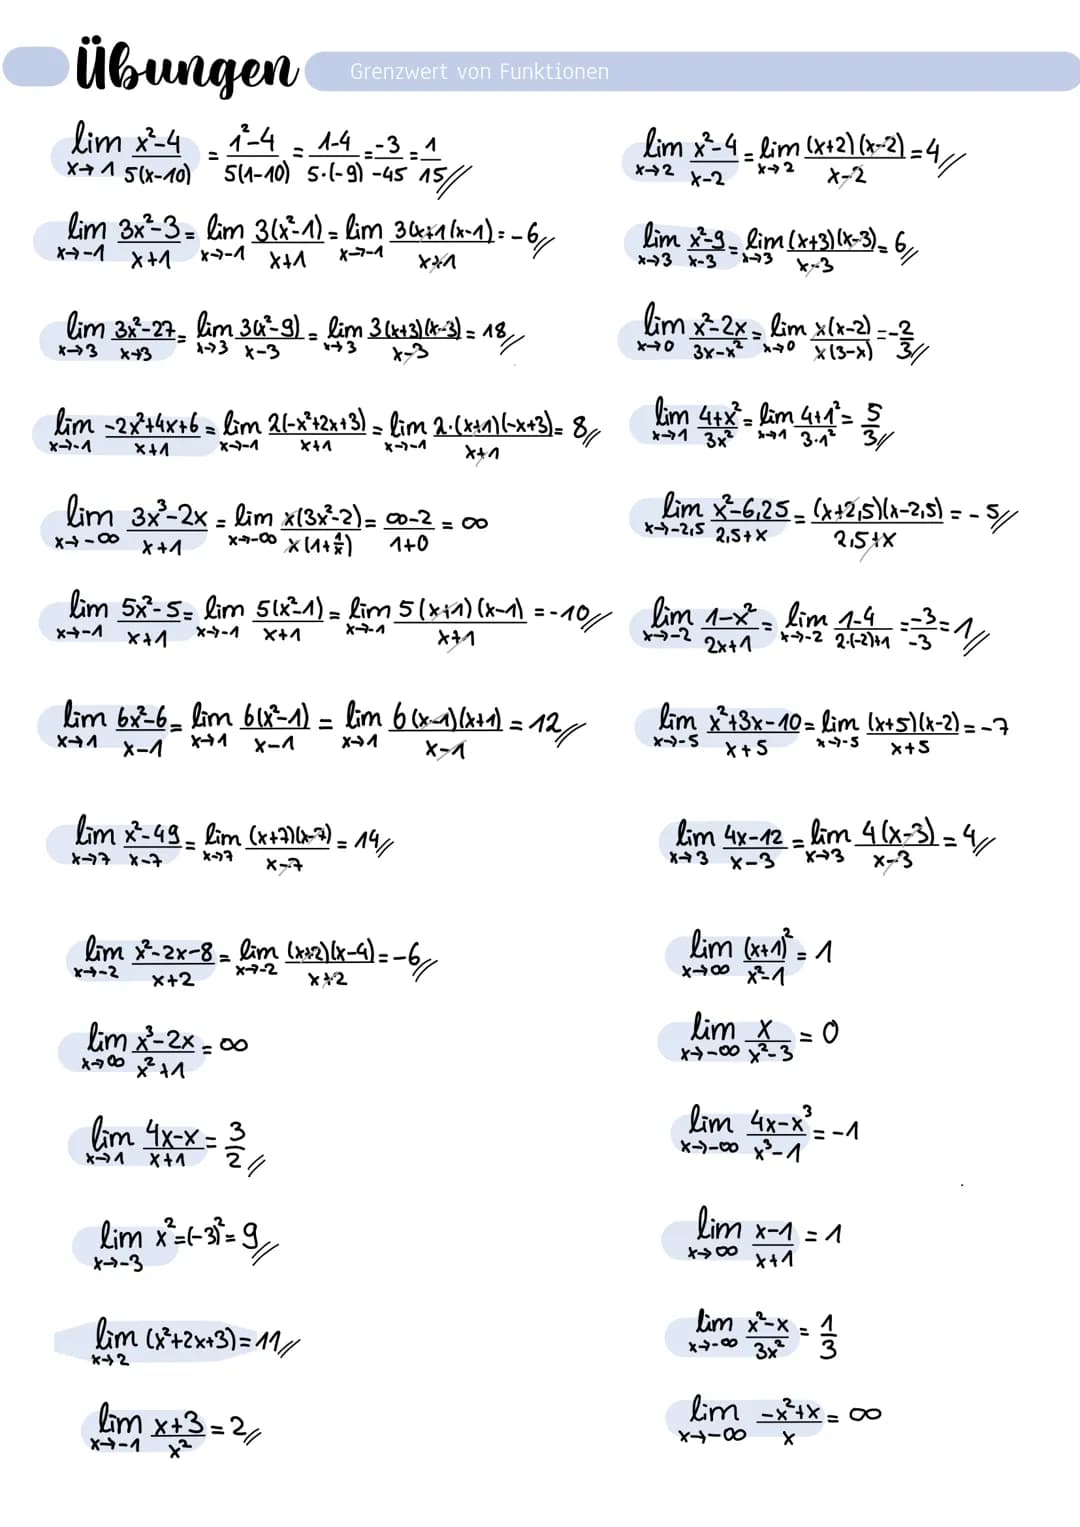 Übungen
Grenzwert von Funktionen
lim x→1 (x²-4)/(5(x-10)) = (1²-4)/(5(1-10)) = (1-4)/(5·(-9)) = -3/-45 = 1/15
lim x→-1 (3x²-3)/(x+1) = lim x→-1 3(x²-1)/(x+1) = lim x→-1 3(x+1(x-1)/(x+1) = -6
lim x→3 (3x²-27)/(x+3) = lim x→3 3(x²-9)/(x-3) = lim x→3 3(x+3)(x-3)/(x-3) = 18
lim x→-1 (-2x²+4x+6)/(x+1) = lim x→-1 2(-x²+2x+3)/(x+1) = lim x→-1 2·(x+1)(-x+3)/(x+1) = 8
lim x→-∞ (3x³-2x)/(x+1) = lim x→-∞ x(3x²-2)/(x(1+1/x)) = (∞-2)/(1+0) = ∞
lim x→-1 (5x²-5)/(x+1) = lim x→-1 5(x²-1)/(x+1) = lim x→-1 5(x+1)(x-1)/(x+1) = -10
lim x→1 (6x²-6)/(x-1) = lim x→1 6(x²-1)/(x-1) = lim x→1 6(x-1)(x+1)/(x-1) = 12
lim x→7 (x²-49)/(x-7) = lim x→7 (x+7)(x-7)/(x-7) = 14
lim x→-2 (x²-2x-8)/(x+2) = lim x→-2 (x+2)(x-4)/(x+2) = -6
lim x→∞ (x³-2x)/(x²+1) = ∞
lim x→1 (4x-x)/(x+1) = 3/2
lim x→-3 x² = (-3)² = 9
lim x→2 (x²+2x+3) = 11
lim x→-1 (x+3)/x² = 2
lim x→2 (x²-4)/(x-2) = lim x→2 (x+2)(x-2)/(x-2) = 4
lim x→3 (x²-9)/(x-3) = lim x→3 (x+3)(x-3)/(x-3) = 6
lim x→0 (x²-2x)/(3x-x²) = lim x→0 x(x-2)/(x(3-x)) = -2/3
lim x→1 (4+x²)/(3x²) = lim x→1 (4+1²)/(3·1²) = 5/3
lim x→-2,5 (x²-6,25)/(2,5+x) = (x+2,5)(x-2,5)/(2,5+x) = -5
lim x→-2 (1-x²)/(2x+1) = lim x→-2 (1-4)/(2·(-2)+1) = -3/-3 = 1
lim x→-5 (x²+3x-10)/(x+5) = lim x→-5 (x+5)(x-2)/(x+5) = -7
lim x→3 (4x-12)/(x-3) = lim x→3 4(x-3)/(x-3) = 4
lim x→∞ (x+1)²/(x²-1) = 1
lim x→-∞ x/(x²-3) = 0
lim x→-∞ (4x-x³)/(x³-1) = -1
lim x→∞ (x-1)/(x+1) = 1
lim x→-∞ (x²-x)/(3x²) = 1/3
lim x→-∞ (-x²+x)/x = ∞